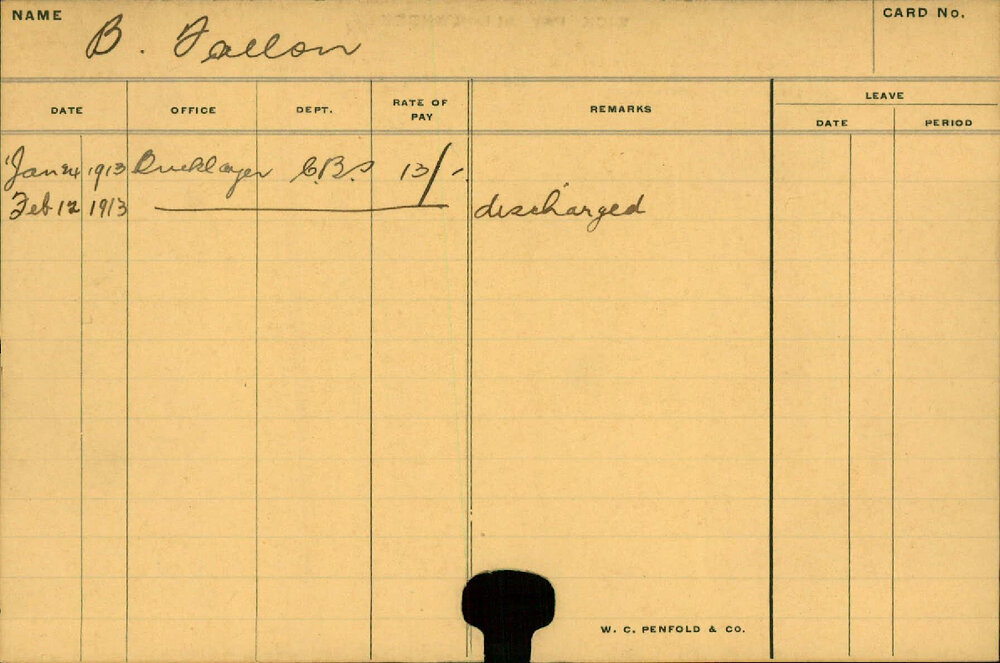 NAME B. Fallon CARD No.
DATE OFFICE DEPT. RATE OF PAY REMARKS LEAVE
DATE PERIOD
Jan 24 1913 Bricklayer C.B.S 13/-
Feb 12 1913 discharged
W. C. PENFOLD & CO.